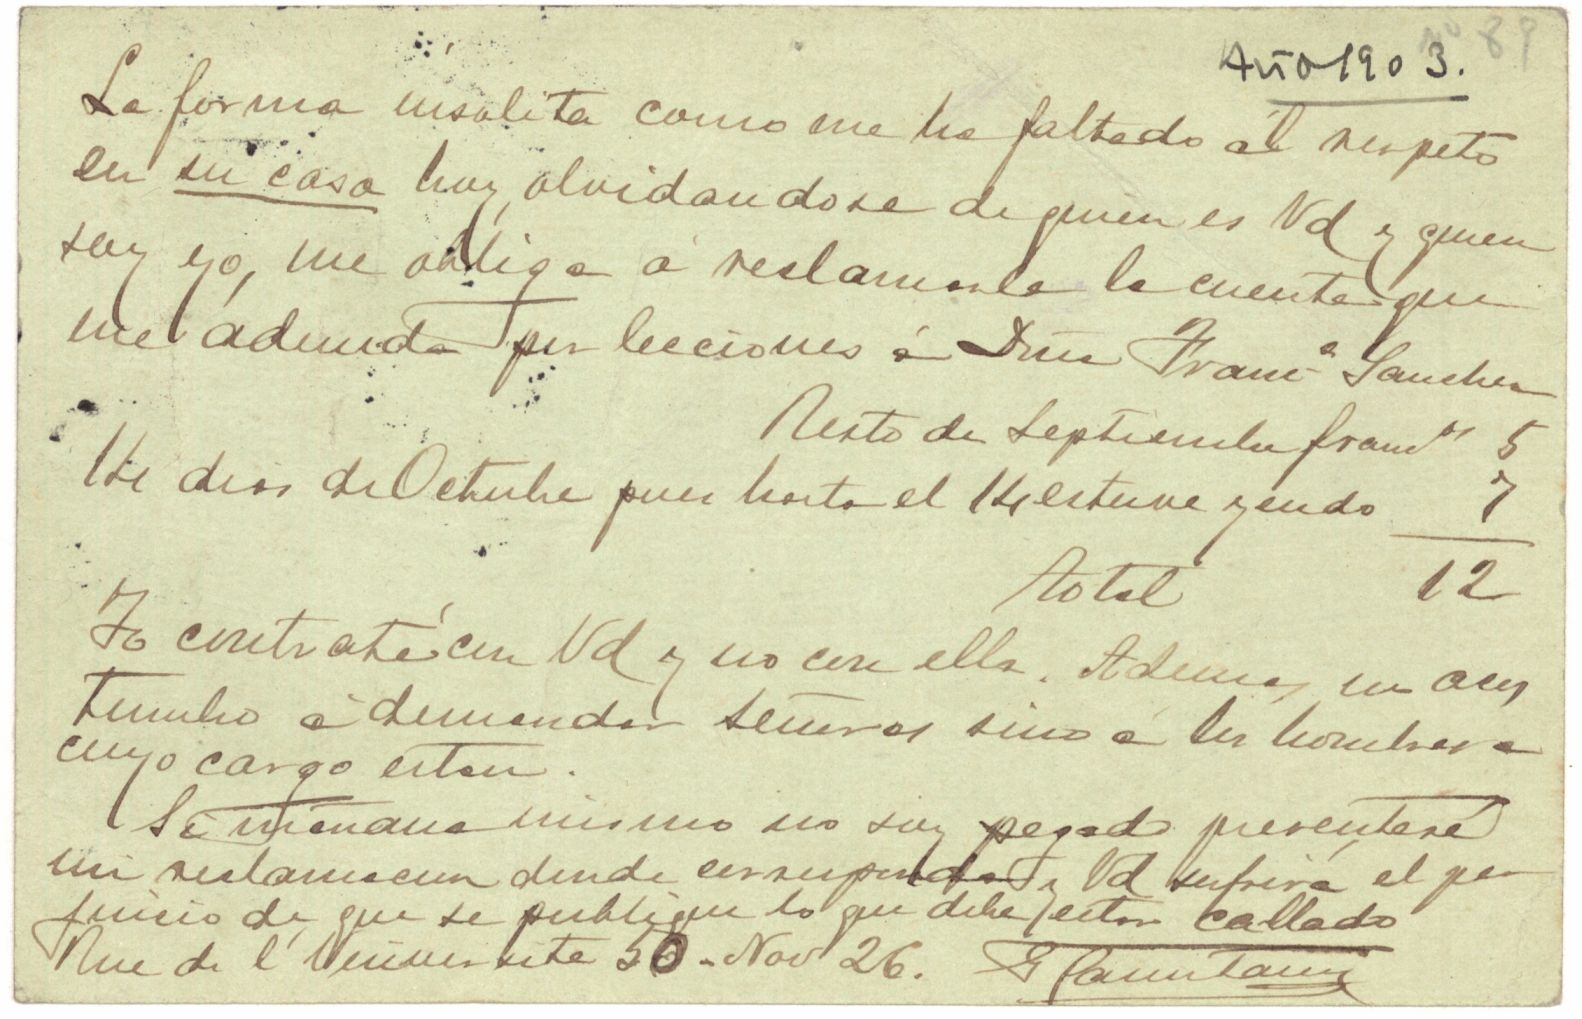 nº 89
Año 1903.
La forma insolita como me ha faltado al respeto
en su casa hoy, olvidandose de quien es Vd y quien
soy yo, me obliga á reclamarle la cuenta que
me adeuda por lecciones á Dña Franca Sanchez
Resto de Septiembre francs 5
14 dias de Octubre pues hasta el 14 estuve yendo 7
total 12
Yo contraté con Vd y no con ella. Ademas, no acos
tumbro á demandar señoras sino á los hombres a
cuyo cargo estan.
Si mañana mismo no soy pagado presentaré
mi reclamacion donde corresponda y Vd sufrirá el per
juicio de que se publique lo que debe estar callado
Rue de l'Université 50. Nov 26.